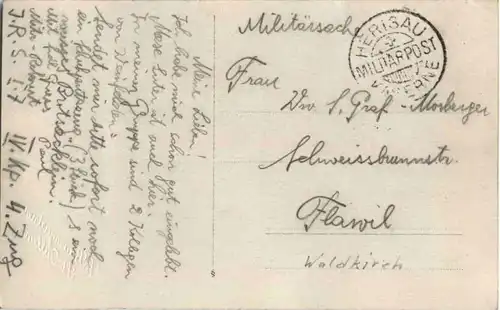 Meine Lieben!
Ich habe mich schon gut eingelebt.
Max Suter ist auch hier.
In meiner Gruppe sind 2 Kollegen
von
Sendet mir bitte sofort noch
ein (3 Stück) &
Mit fr. Gruss
Paul
I.R.S. I.7 IV Kp. 4. Zug
Militärsache
HERISAU
MILITÄRPOST
KASERNE
Frau
Wwe S. Graf-Morberger
Schweissbrunnstr.
Flawil
Waldkirch